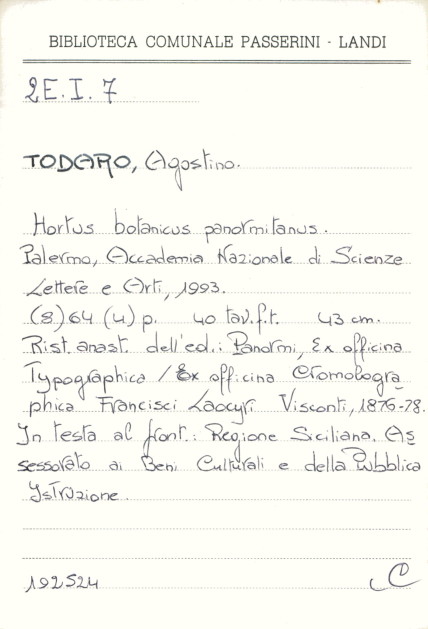 BIBLIOTECA COMUNALE PASSERINI - LANDI
2E. I. 7
TODARO, Agostino.
Hortus botanicus panormitanus.
Palermo, Accademia Nazionale di Scienze
Lettere e Arti, 1993.
(8) 64 (4) p. 40 tav. f.t. 43 cm.
Rist. anast. dell'ed.: Panormi, Ex officina
Typographica / Ex officina Cromologra
phica Francisci Laocyri Visconti, 1876-78.
In testa al front.: Regione Siciliana. As
sessorato ai Beni Culturali e della Pubblica
Istruzione.
192524